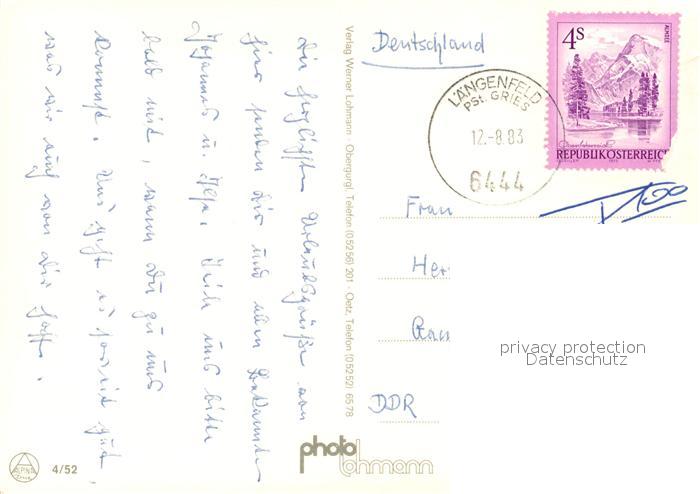 Die herzlichsten Urlaubsgrüße von
hier senden dir und allen Bekannten
Johannes u. Ilse. Teile uns bitte
bald mit, wann Du zu uns
kommst. Uns geht es soweit gut,
was wir auch von dir hoffen.
Verlag Werner Lohmann · Obergurgl, Telefon (05256) 201 · Oetz, Telefon (05252) 6578
Deutschland
LÄNGENFELD
PSt. GRIES
12.-8.83
6444
4S
ALMSEE
REPUBLIK ÖSTERREICH
Frau
Her
DDR
privacy protection
Datenschutz
photo
lohmann
4/52